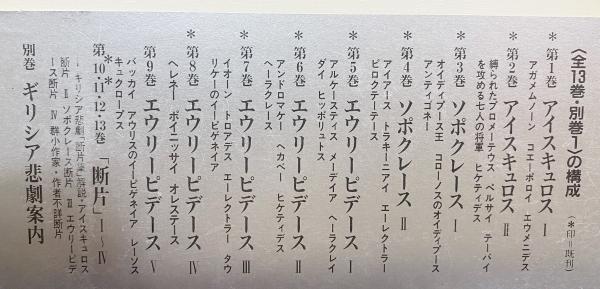 〈全13巻・別巻1〉の構成
(*印=既刊)
*第1巻 アイスキュロス Ⅰ
アガメムノーン コエーポロイ エウメニデス
*第2巻 アイスキュロス Ⅱ
縛られたプロメーテウス ペルサイ テーバイ
を攻める七人の将軍 ヒケティデス
*第3巻 ソポクレース Ⅰ
オイディプース王 コローノスのオイディプース
アンティゴネー
*第4巻 ソポクレース Ⅱ
アイアース トラキーニアイ エーレクトラー
ピロクテーテース
*第5巻 エウリーピデース Ⅰ
アルケースティス メーデイア ヘーラクレイ
ダイ ヒッポリュトス
*第6巻 エウリーピデース Ⅱ
アンドロマケー ヘカベー ヒケティデス
ヘーラクレース
*第7巻 エウリーピデース Ⅲ
イオーン トロアデス エーレクトラー タウ
リケーのイーピゲネイア
*第8巻 エウリーピデース Ⅳ
ヘレネー ポイニッサイ オレステース
第9巻 エウリーピデース Ⅴ
バッカイ アウリスのイーピゲネイア レーソス
キュクロープス
第10・11・12・13巻 「断片」Ⅰ〜Ⅳ
Ⅰ ギリシア悲劇「断片集」解説・アイスキュロス
断片 Ⅱ ソポクレース断片 Ⅲ エウリーピデ
ース断片 Ⅳ 群小作家・作者不詳断片
別巻 ギリシア悲劇案内